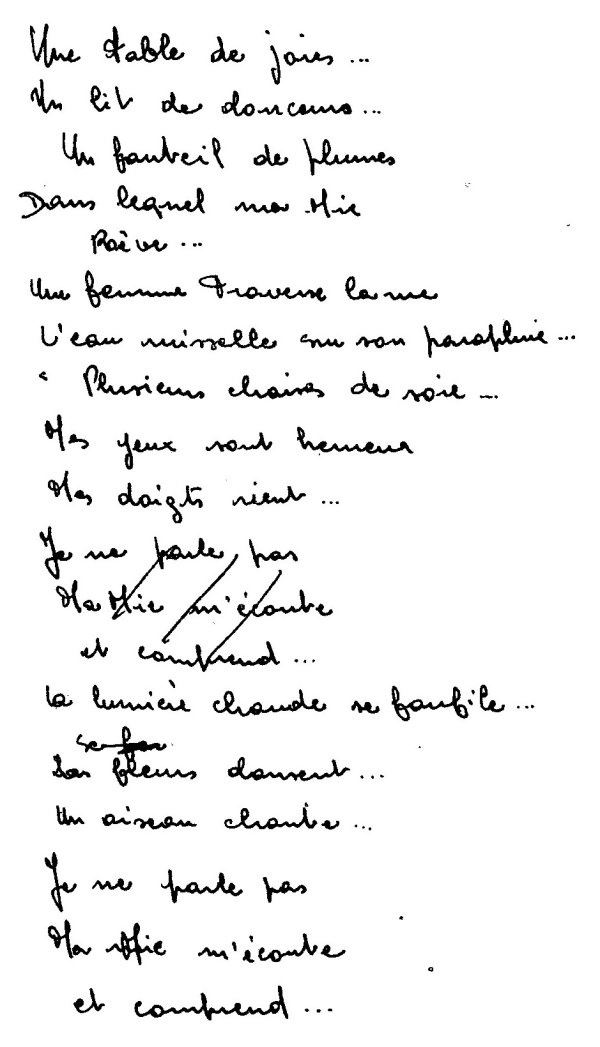 Une table de joies...
Un lit de douceurs...
Un fauteil de plumes
Dans lequel ma Mie
Rêve...
Une femme traverse la rue
L'eau ruisselle sur son parapluie...
Plusieurs chaises de soie...
Mes yeux sont heureux
Mes doigts rient...
Je ne parle pas
Ma Mie m'écoute
et comprend...
la lumière chaude se faufile...
Les fleurs dansent...
Un oiseau chante...
Je ne parle pas
Ma Mie m'écoute
et comprend...